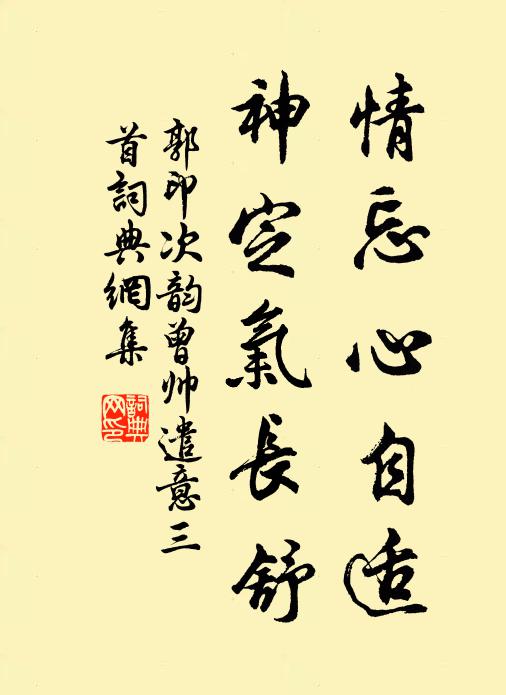 情忘心自适
神定氣長舒
郭印次韵曾帅遣意三
首詞典網集
詞典
网印